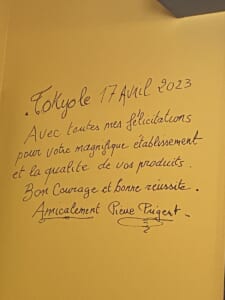 Tokyo le 17 Avril 2023
Avec toutes mes félicitations
pour votre magnifique établissement
et la qualité de vos produits.
Bon Courage et bonne réussite.
Amicalement